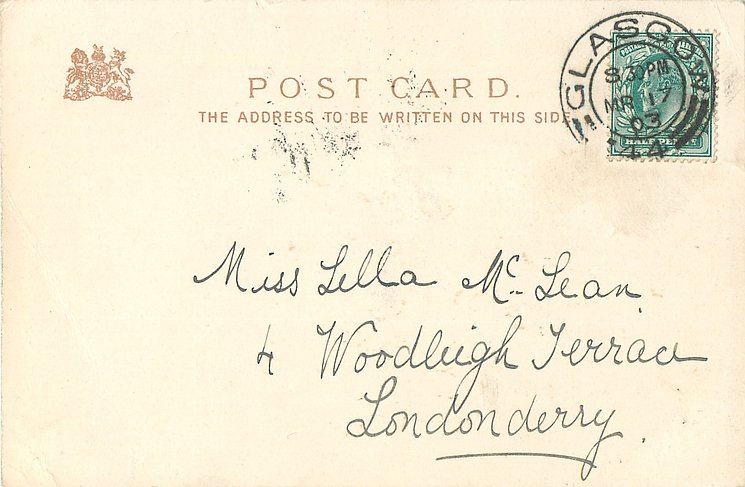 POST CARD.
THE ADDRESS TO BE WRITTEN ON THIS SIDE
GLASGOW
8.30PM
MR 17
03
HALF PENNY
Miss Lella McLean
4 Woodleigh Terrace
Londonderry.